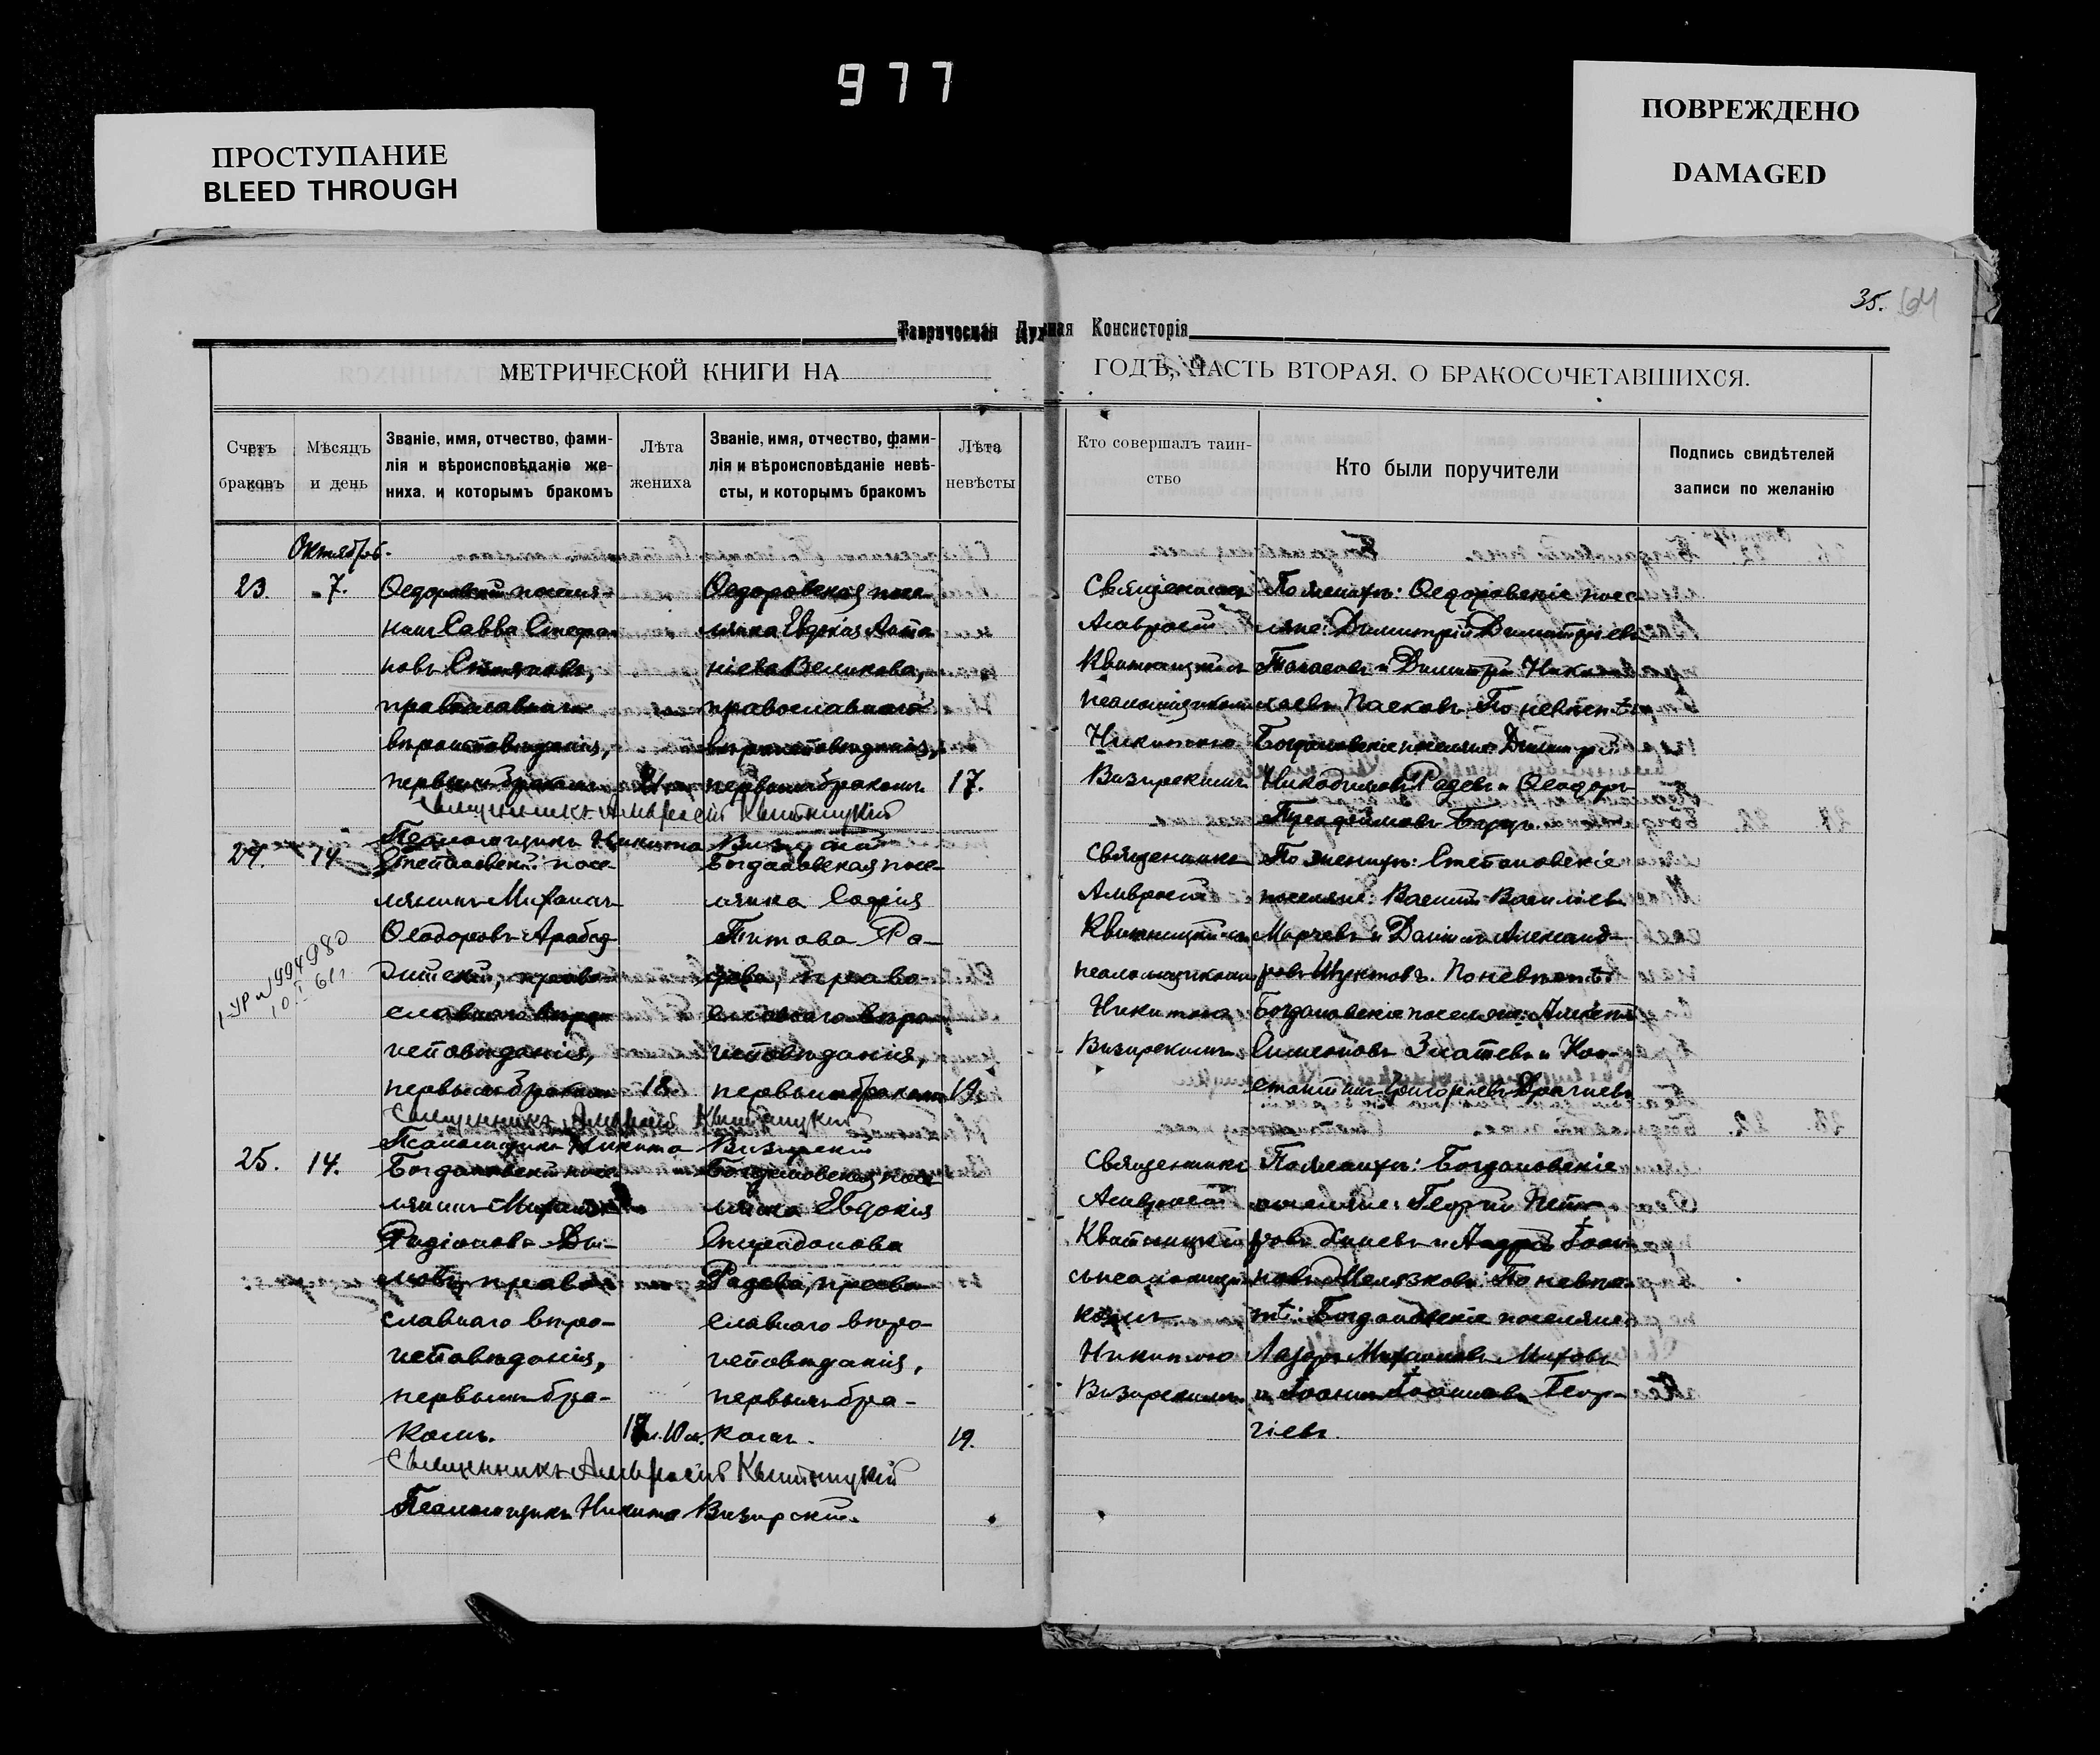 977
ПРОСТУПАНИЕ
BLEED THROUGH
ПОВРЕЖДЕНО
DAMAGED
35. 64
Таврическая Духная Консисторія
МЕТРИЧЕСКОЙ КНИГИ НА ГОДЪ, ЧАСТЬ ВТОРАЯ, О БРАКОСОЧЕТАВШИХСЯ.
Счетъ
браковъ
Мѣсяцъ
и день
Званіе, имя, отчество, фами-
лія и вѣроисповѣданіе же-
ниха, и которымъ бракомъ
Лѣта
жениха
Званіе, имя, отчество, фами-
лія и вѣроисповѣданіе невѣ-
сты, и которымъ бракомъ
Лѣта
невѣсты
Кто совершалъ таин-
ство
Кто были поручители
Подпись свидѣтелей
записи по желанію
Октябрь.
23.
7.
Ѳедоровскій поселя-
нинъ Савва Стефа-
новъ Стояновъ,
православнаго
вѣроисповѣданія,
первымъ бракомъ
Ѳедоровская посе-
лянка Евдокія Анто-
ніева Великова,
православнаго
вѣроисповѣданія,
первымъ бракомъ.
17.
Священникъ
Амвросій
Квитницкій съ
псаломщикомъ
Никитою
Визирскимъ
По женихѣ: Ѳедоровскіе посе-
ляне: Димитрій Димитріевъ
и Димитрій Нико-
лаевъ Пасковъ. По невѣстѣ:
Богдановскіе поселяне Димитрій
Никодимовъ Радевъ и Ѳеодоръ
Священникъ Амвросій Квитницкій
Псаломщикъ Никита Визирскій
24.
14.
Степановскій посе-
лянинъ Михаилъ
Ѳеодоровъ Арабад-
жійскій, право-
славнаго вѣро-
исповѣданія,
первымъ бракомъ
18.
Богдановская посе-
лянка Софія
Титова Ра-
дева, право-
славнаго вѣро-
исповѣданія,
первымъ бракомъ
19.
Священникъ
Амвросій
Квитницкій съ
псаломщикомъ
Никитою
Визирскимъ
По женихѣ: Степановскіе
поселяне: Василій Васильевъ
Марчевъ и Даніилъ Александ-
ровъ. По невѣстѣ:
Богдановскіе поселяне: Алексѣй
Симеоновъ Златевъ и Кон-
стантинъ Григорьевъ Драгневъ
Священникъ Амвросій Квитницкій
Псаломщикъ Никита Визирскій
25.
14.
Богдановскій посе-
лянинъ Михаилъ
Родіоновъ Ди-
мовъ, право-
славнаго вѣро-
исповѣданія,
первымъ бра-
комъ.
Богдановская посе-
лянка Евдокія
Спиридонова
Радева, право-
славнаго вѣро-
исповѣданія,
первымъ бра-
комъ.
19.
Священникъ
Амвросій
Квитницкій
съ псаломщи-
комъ
Никитою
Визирскимъ
По женихѣ: Богдановскіе
поселяне: Георгій Пет-
ровъ и Андрей Іоан-
новъ Мелязковъ. По невѣ-
стѣ: Богдановскіе поселяне:
Лазарь Михаиловъ Миховъ
и Іоаннъ Іоанновъ Геор-
гіевъ.
Священникъ Амвросій Квитницкій
Псаломщикъ Никита Визирскій.